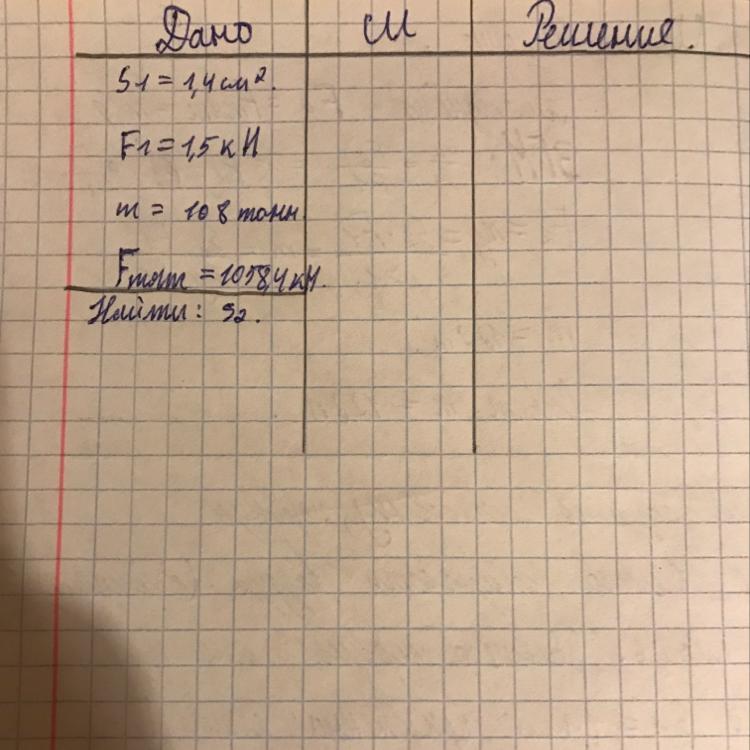 Дано СИ Решение.
S1 = 1,4 см².
F1 = 1,5 кН
m = 108 тонн.
Fтят = 1058,4 кН.
Найти: S2.